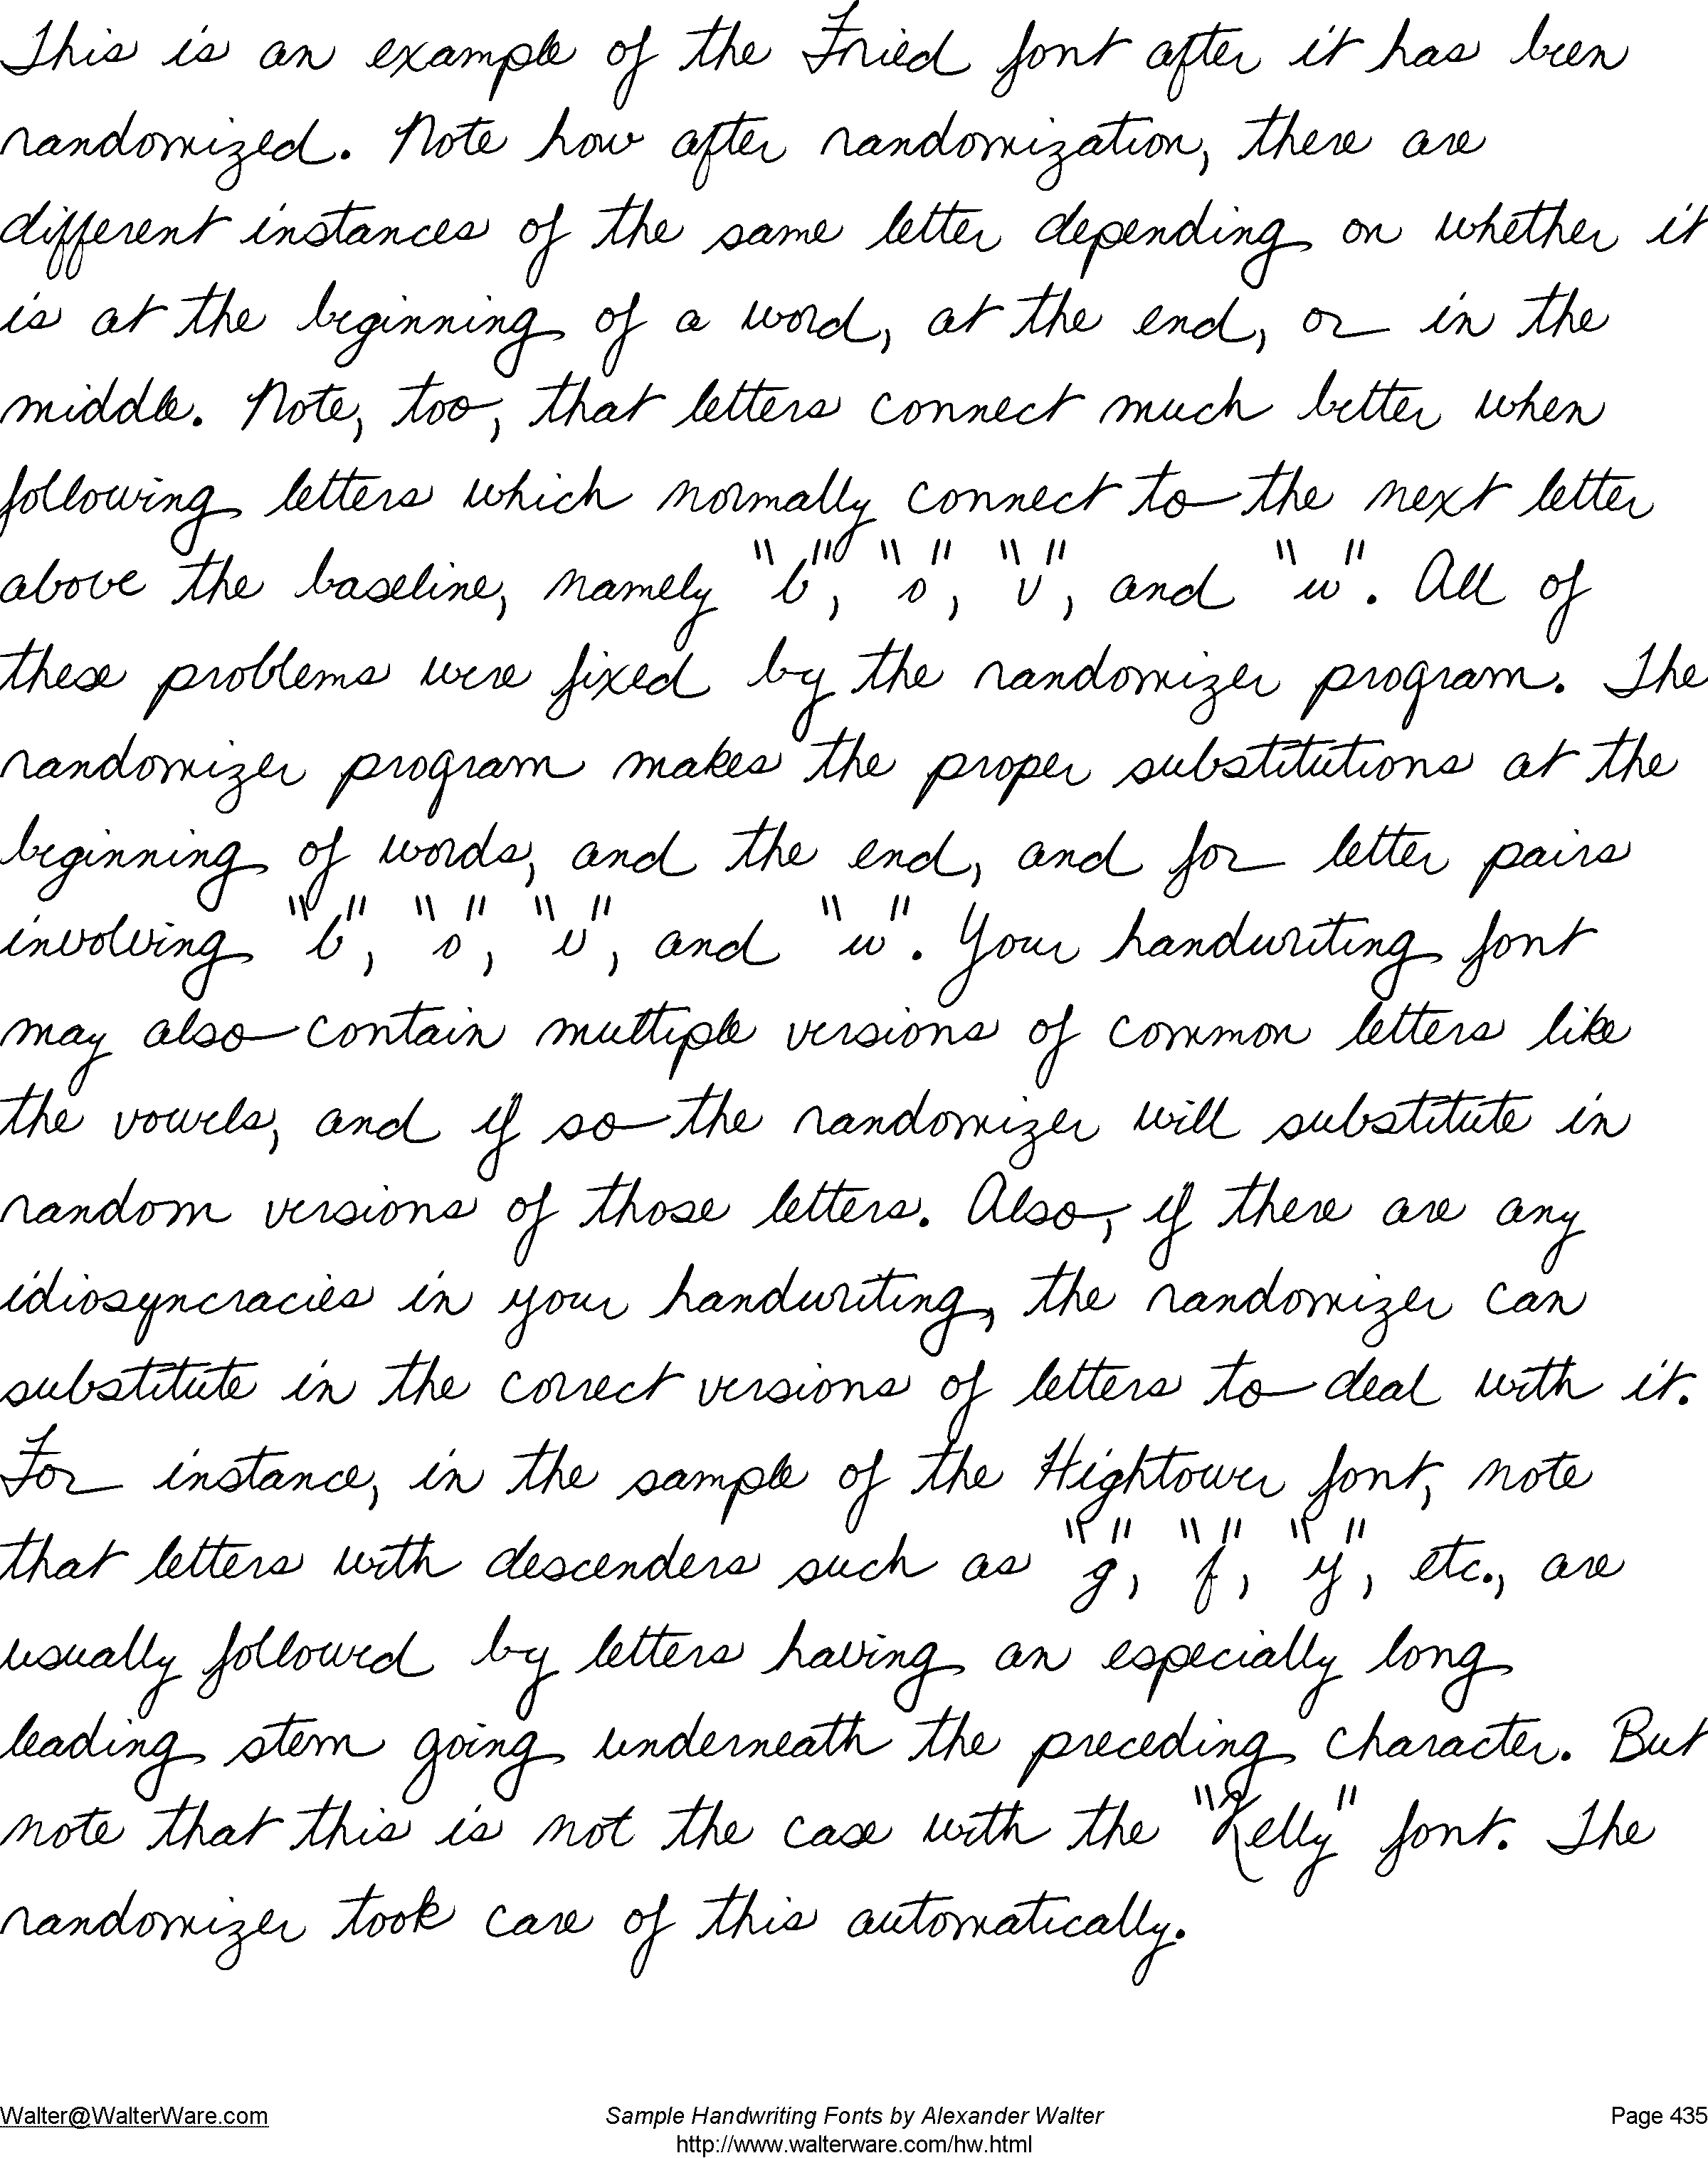 This is an example of the Fried font after it has been
randomized. Note how after randomization, there are
different instances of the same letter depending on whether it
is at the beginning of a word, at the end, or in the
middle. Note, too, that letters connect much better when
following letters which normally connect to the next letter
above the baseline, namely "b", "o", "v", and "w". All of
these problems were fixed by the randomizer program. The
randomizer program makes the proper substitutions at the
beginning of words, and the end, and for letter pairs
involving "b", "o", "v", and "w". Your handwriting font
may also contain multiple versions of common letters like
the vowels, and if so the randomizer will substitute in
random versions of those letters. Also, if there are any
idiosyncracies in your handwriting, the randomizer can
substitute in the correct versions of letters to deal with it.
For instance, in the sample of the Hightower font, note
that letters with descenders such as "g", "f", "y", etc., are
usually followed by letters having an especially long
leading stem going underneath the preceding character. But
note that this is not the case with the "Kelly" font. The
randomizer took care of this automatically.
Walter@WalterWare.com
Sample Handwriting Fonts by Alexander Walter
http://www.walterware.com/hw.html
Page 435